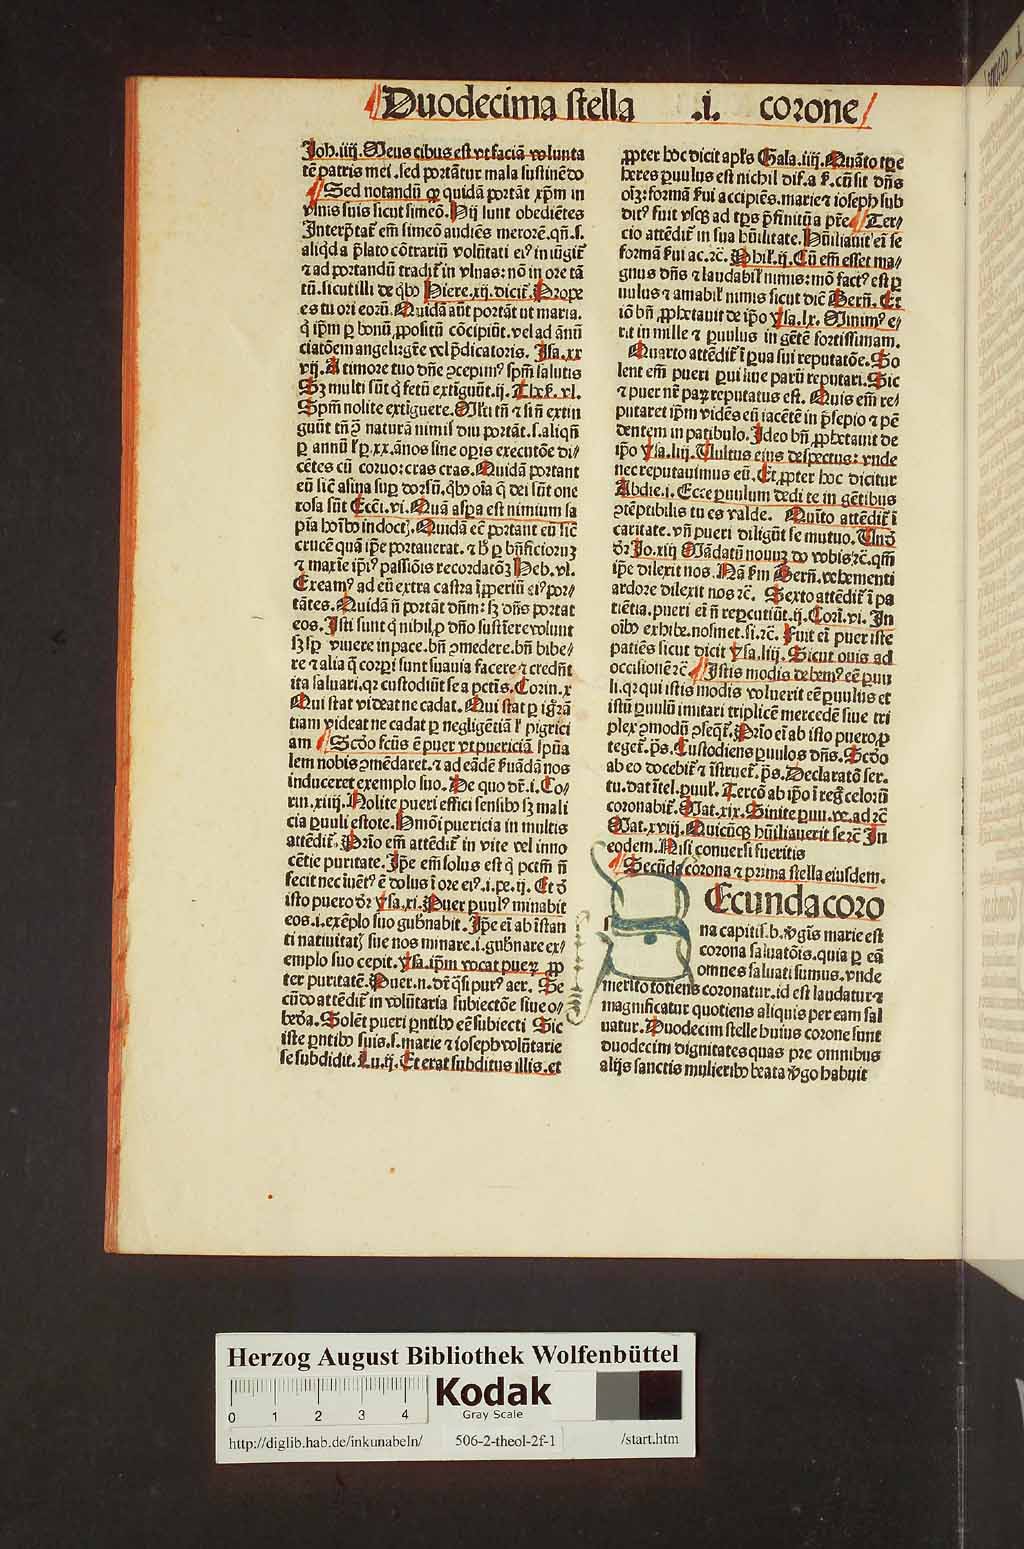 Duodecima stella .i. corone
Joh.iiij. Meus cibus est vt faciā volunta
tē patris mei. sed portātur mala sustinēdo
Sed notandū ꝙ quidā portāt xp̄m in
vlnis suis sicut simeō. Hij sunt obediētes
Interp̄tat᷑ em̄ simeō audiēs merorē. qn̄.s.
aliqd a p̄lato cōtrariū volūtati eiꝰ iniūgit᷑
⁊ ad portandū tradit᷑ in vlnas: nō in ore tā
tū. sicut illi de qͥbꝰ Hiere.xij. dicit᷑. Prope
es tu ori eorū. Quidā aūt portāt vt maria.
q̄ ip̄m ꝑ bonū ꝓpositū cōcipiūt. vel ad ānū
ciatōem angeli: gr̄e vel p̄dicatoris. Isa.xx
vij. A timore tuo dn̄e ꝯcepimꝰ sp̄m salutis
Sꝫ multi sūt q̄ fetū extīguūt. ij. Thess. vl.
Sp̄m nolite extīguere. Isti tn̄ ⁊ si nō extin
guūt tn̄ ꝯͣ naturā nimis diu portāt. s. aliqn̄
ꝑ annū s̄ꝫ ꝑ.xx. ānos sine oꝑis executōe di/
cētes cū coruo: cras cras. Quidā portant
eū sic̄ asina suꝑ dorsū. qͥbꝰ oīa q̄ dei sūt one
rosa sūt Ecci.vi. Quā asꝑa est nimium sa
pīa hoībꝰ indoct). Quidā ec̄ portant eū sic̄
crucē quā ip̄e portauerat. ⁊ hi ꝑ bn̄ficiorum
⁊ maxīe ip̄iꝰ passiōis recordatōꝫ Heb. vl.
Exeamꝰ ad eū extra castra īproperiū eiꝰ por/
tātes. Quidā n̄ portāt dn̄m: sꝫ dn̄s portat
eos. Isti sunt q̄ nihil ꝓ dn̄o sustīere volunt
sꝫ sp̄ viuere in pace. bn̄ ꝯmedere. bn̄ bibe/
re ⁊ alia q̄ corꝑi sunt suauia facere ⁊ credūt
ita saluari. qꝛ custodiūt se a pctīs. Corin.x
Qui stat videat ne cadat. Qui stat ꝑ igr̄ā
tiam videat ne cadat ꝑ negligētiā sꝫ pigrici
am Scd̄o fcūs ē puer vt puericiā spūa
lem nobis ꝯmēdaret. ⁊ ad eādē seruādā nos
induceret exemplo suo. De quo dr̄.i. Co/
rin.xiiij. Nolite pueri effici sensibꝰ sꝫ mali
cia ꝑuuli estote. Hmōi puericia in multis
attēdit᷑. Prīo em̄ attēdit᷑ in vite vel inno
cētie puritate. Ip̄e em̄ solus est q̄ pctm̄ n̄
fecit nec inuētꝰ ē dolus ī ore eiꝰ.i.pe.ij. Et d̄
isto puero dr̄ ysa.xi. Puer puulꝰ minabit
eos.i. exēplo suo gubn̄abit. Ip̄e em̄ ab īstan
ti natiuitat) sue nos minare.i. gubn̄are ex/
emplo suo cepit. ysa. ip̄m vocat pueꝝ ꝓp
ter puritatē. Puer.n. dr̄ q̄si purꝰ aer. Se
cūdo attēdit᷑ in volūtaria subiectōe siue o/
bedīa. Solēt pueri pn̄tibꝰ eē subiecti Sic
iste pn̄tibꝰ suis.s. marie ⁊ ioseph volūtarie
se subdidit. Lu.ij. Et erat subditus illis. et
ꝓpter hoc dicit apl̄s Gala.iiij. Quāto tp̄e
heres puulus est nichil dif.a s. cū sit dn̄s
oīꝫ: formā serui accipiēs. marie ⁊ ioseph sub
ditꝰ fuit vsqꝫ ad tp̄s p̄finitū a pr̄e Ter/
cio attēdit᷑ in sua hūilitate. Hūiliauit em̄ se
formā serui ac.⁊c. Phil.ij. Cū em̄ esset ma/
gnus dn̄s ⁊ laudabil̄ nimis: mō factꝰ est ꝑ
uulus ⁊ amabil̄ nimis sicut dic̄ Bern̄. Et
iō bn̄ ꝓphetauit de ip̄o ysa.lx. Minimꝰ e/
rit in mille ⁊ ꝑuulus in gētē fortissimam.
Quarto attēdit᷑ ī ꝑua sui reputatōe. So
lent em̄ pueri ꝑui siue parū reputari. Sic
⁊ puer nr̄ paꝝ reputatus est. Quis em̄ re/
putaret ip̄m vidēs eū iacētē in p̄sepio ⁊ pē
dentem in patibulo. Ideo bn̄ ꝓphetauit de
ip̄o ysa.liij. Vultus eius despectus: vnde
nec reputauimus eū. Et ꝓpter hoc dicitur
Abdie.i. Ecce ꝑuulum dedi te in gētibus
ꝯtēptibilis tu es valde. Quīto attēdit᷑ ī
caritate. vn̄ pueri diligūt se mutuo. Vnd̄
dr̄ Jo.xiij Mādatū nouuꝫ do vobis ⁊c. qm̄
ip̄e dilexit nos. Nā sm̄ Bern̄. vehementi
ardore dilexit nos ⁊c. Sexto attēdit᷑ ī pa
tiētia. pueri em̄ n̄ reꝑcutiūt. ij. Corī.vi. In
oībꝰ exhibe. nosmet.si.⁊c. Fuit em̄ puer iste
patiēs sicut dicit ysa.liij. Sicut ouis ad
occisionē ⁊c Istis modis debemꝰ eē ꝑuu
li. qꝛ qui istis modis voluerit eē ꝑuulus et
istū ꝑuulū imitari triplicē mercedē siue tri
plex ꝯmodū ꝯseq̄t᷑. Prīo em̄ ab isto puero ꝓ
teget᷑. ps̄. Custodiens ꝑuulos dn̄s. Scd̄o
ab eo docebit᷑ ⁊ īstruet᷑. ps̄. Declaratō ser.
tu. dat ītel. ꝑuul̄. Tercō ab ip̄o ī regꝭ celorū
coronabit᷑. Mat.xix. Sinite ꝑuu. ve. ad ⁊c
Mat.xviij. Quicūqꝫ hūiliauerit se ⁊c In
eodem. Nisi conuersi fueritis
Secūda corona ⁊ prima stella eiusdem.
SEcunda coro
na capitis.b. v̄gīs marie est
corona saluatōis. quia ꝑ eā
omnes saluati sumus. vnde
merito totiens coronatur. id est laudatur ⁊
magnificatur quotiens aliquis per eam sal
uatur. Duodecim stelle huius corone sunt
duodecim dignitates quas pre omnibus
alijs sanctis mulieribꝰ beata v̄go habuit
Herzog August Bibliothek Wolfenbüttel
0 1 2 3 4
Kodak
Gray Scale
http://diglib.hab.de/inkunabeln/ 506-2-theol-2f-1 /start.htm